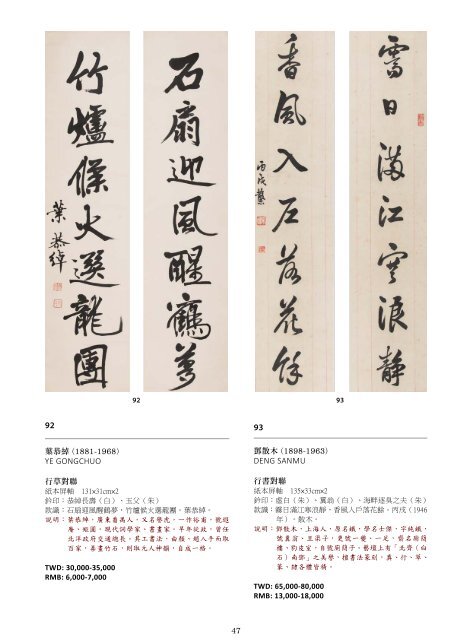 石扇迎風醒鶴夢
竹爐候火選龍團
葉恭綽
霽日滿江寒浪靜
香風入戶落花餘
丙戌
92
93
92
葉恭綽 (1881-1968)
YE GONGCHUO
行草對聯
紙本屏軸 131×31cm×2
鈐印：恭綽長壽（白）、玉父（朱）
款識：石扇迎風醒鶴夢，竹爐候火選龍團。葉恭綽。
說明：葉恭綽，廣東番禺人，又名譽虎，一作裕甫，號遐
庵、矩園，現代詞學家、書畫家。早年從政，曾任
北洋政府交通總長。其工書法，由顏、趙入手而取
百家，善畫竹石，則取元人神韻，自成一格。
TWD: 30,000-35,000
RMB: 6,000-7,000
93
鄧散木 (1898-1963)
DENG SANMU
行書對聯
紙本屏軸 135×33cm×2
鈐印：虛白（朱）、翼翁（白）、海畔逐臭之夫（朱）
款識：霽日滿江寒浪靜，香風入戶落花餘。丙戌（1946
年），散木。
說明：鄧散木，原名鐵，學名士傑，字鈍鐵，
號糞翁、且渠子，更號一夔、一足，齋名廁簡
樓、豹皮室，自號廁簡子。藝壇上有「北齊（白
石）南鄧」之美譽，擅書法篆刻，真、行、草、
篆、隸各體皆精。
TWD: 65,000-80,000
RMB: 13,000-18,000
47